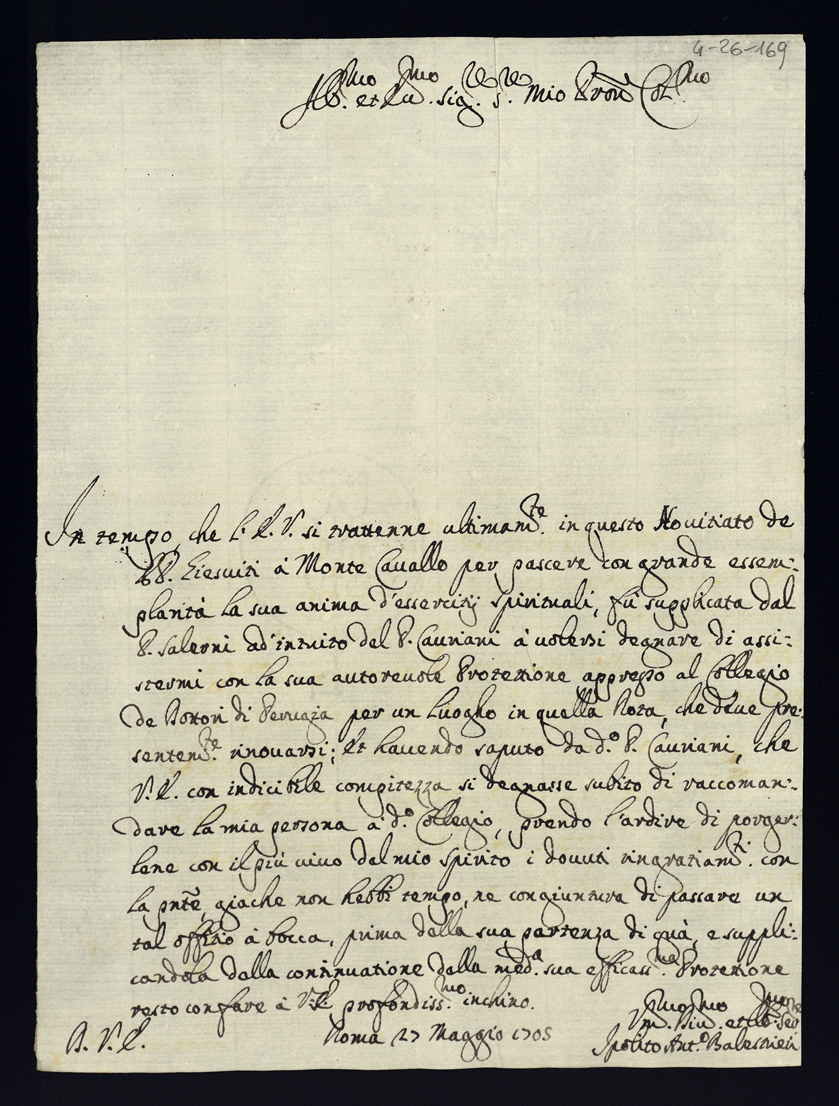 4-26-169
Ill.mo et Ecc.mo Sig.re S.re Mio Pron Col.mo
In tempo, che l'E.V. si trattenne ultimam.te in questo Novitiato de
PP. Giesuiti à Monte Cavallo per pascere con grande essem:
plarità la sua anima d'essercitij spirituali, fù supplicata dal
P. Salerni ad'intuito del P. Cauriani à volersi degnare di assi:
stermi con la sua autorevole Protettione appresso al Collegio
de Dottori di Perugia per un luogho in quella Rota, che deve pre:
sentem.te rinovarsi; Et havendo saputo da d.o P. Cauriani, che
V.E. con indicibile compitezza si degnasse subito di raccoman:
dare la mia persona à d.o Collegio, prendo l'ardire di porger:
lene con il più vivo del mio spirito i dovuti ringratiam.ti con
la pnte, giache non hebbi tempo, ne congiuntura di passare un
tal offitio à bocca, prima della sua partenza di quà, e suppli:
candola della continuatione della med.a sua efficass.ma Protettione
resto con fare à V.E. profondiss.mo inchino.
Roma 27 Maggio 1705
D. V.E.
Um.mo Div.mo et Obl.mo Ser.re
Ipolito Ant.o Balestrieri